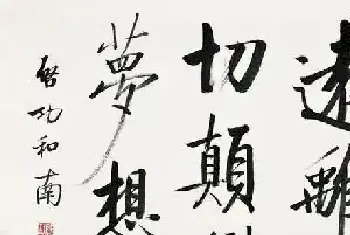 遠離
切顛
夢想
啓功和南